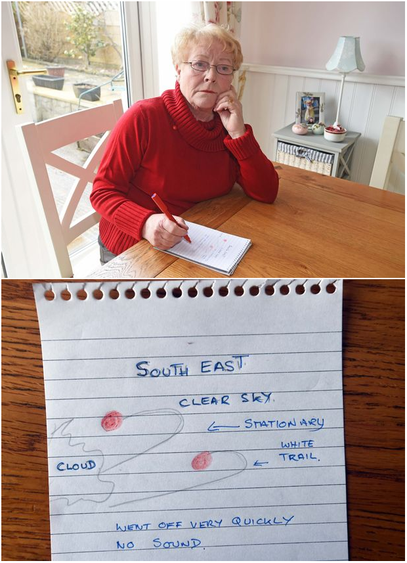 SOUTH EAST.
CLEAR SKY.
STATIONARY
WHITE
TRAIL.
CLOUD
WENT OFF VERY QUICKLY
NO SOUND.